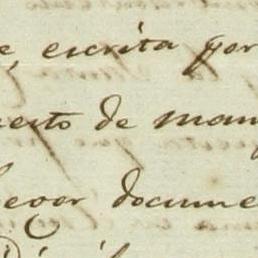 e, escrita por
uesto de man
exer docume